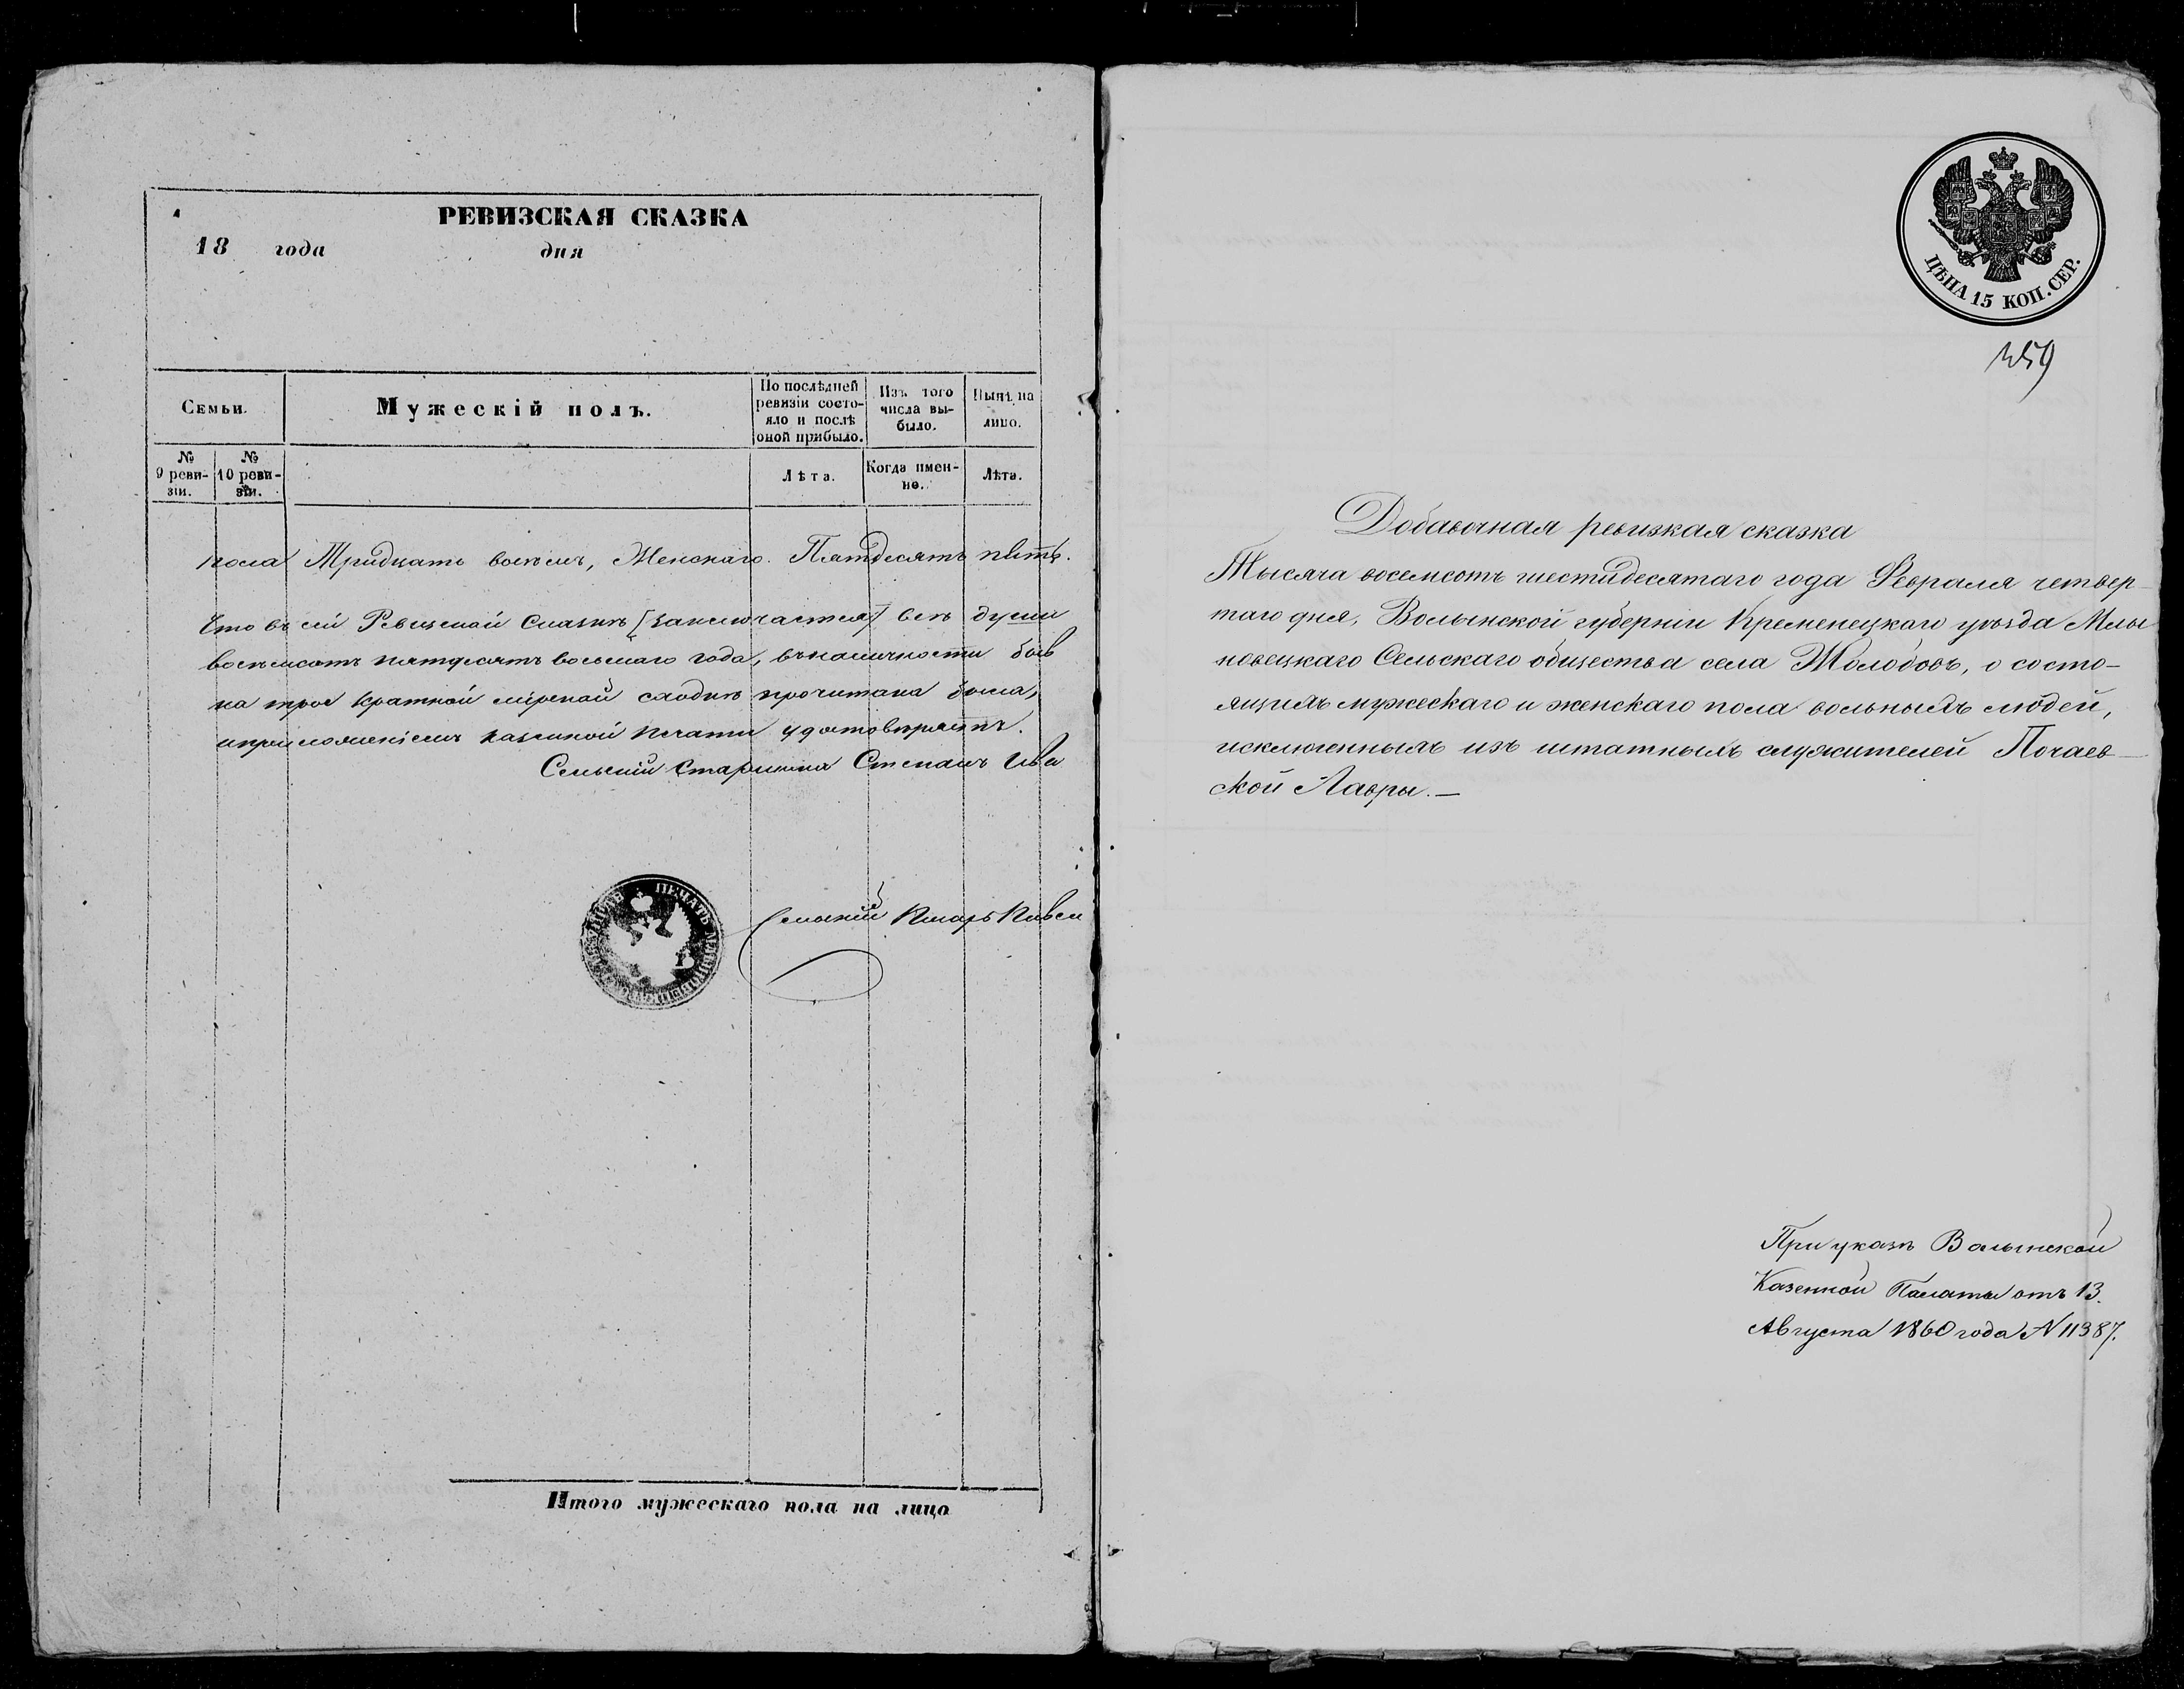 РЕВИЗСКАЯ СКАЗКА
18 года дня
Семьи.
Мужескій полъ.
По послѣдней ревизіи состояло и послѣ оной прибыло.
Изъ того числа выбыло.
Нынѣ на лицо.
№ 9 ревизіи.
№ 10 ревизіи.
Лѣта.
Когда именно.
Лѣта.
пола Тридцать восемъ, Женскаго Пятдесятъ пять.
Что въ сей Ревизской Сказкѣ [заключается] всѣ души
восемсотъ пятдесятъ восьмаго года, въ наличности
на трое кратной мірской сходкѣ прочитана была,
приложеніемъ казенной печати удостовѣряетъ.
Сельскій Старшина Степанъ Ива
ПЕЧАТЬ
Сельскій Писарь Павел
Итого мужескаго пола на лицо
ЦѢНА 15 КОП. СЕР.
359
Добавочная ревизкая сказка
Тысяча восемсотъ шестидесятаго года Февраля четвер-
таго дня, Волынской губерніи Кременецкаго уѣзда Млы
новецкаго Сельскаго общества села Жолобовъ, о состо-
ящихъ мужескаго и женскаго пола вольныхъ людей,
исключенныхъ изъ штатныхъ служителей Почаев-
ской Лавры.—
При указѣ Волынской
Казенной Палаты отъ 13.
Августа 1860 года N 11387.